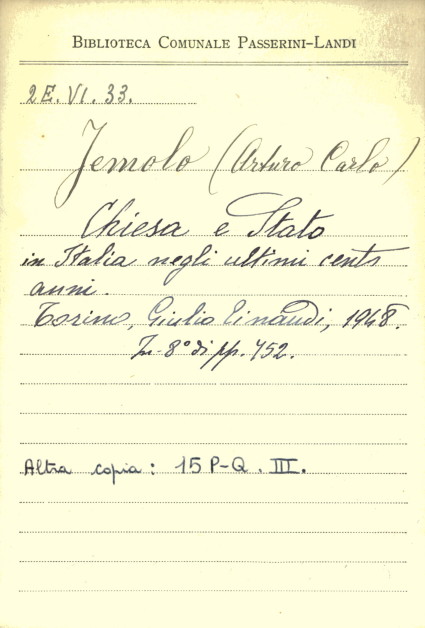 BIBLIOTECA COMUNALE PASSERINI-LANDI
2E. VI. 33.
Jemolo (Arturo Carlo)
Chiesa e Stato
in Italia negli ultimi cento
anni.
Torino, Giulio Einaudi, 1948.
In-8° di pp. 752.
Altra copia: 15 P-Q. III.